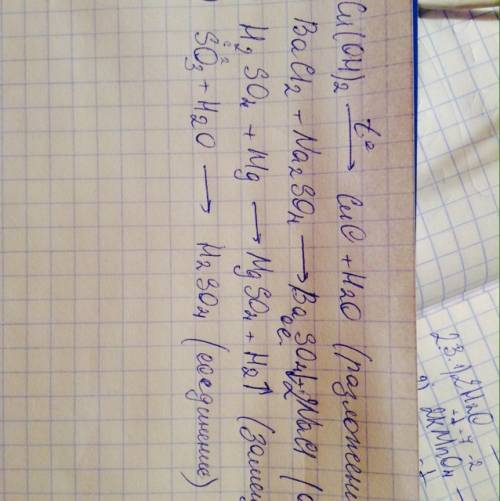 Cu(OH)2 t° → CuO + H2O (разложени
BaCl2 + Na2SO4 → BaSO4↓ + 2NaCl (о
H2SO4 + Mg → MgSO4 + H2↑ (заме
SO3 + H2O → H2SO4 (соединение)
23.1) 2H2O
2KMnO4